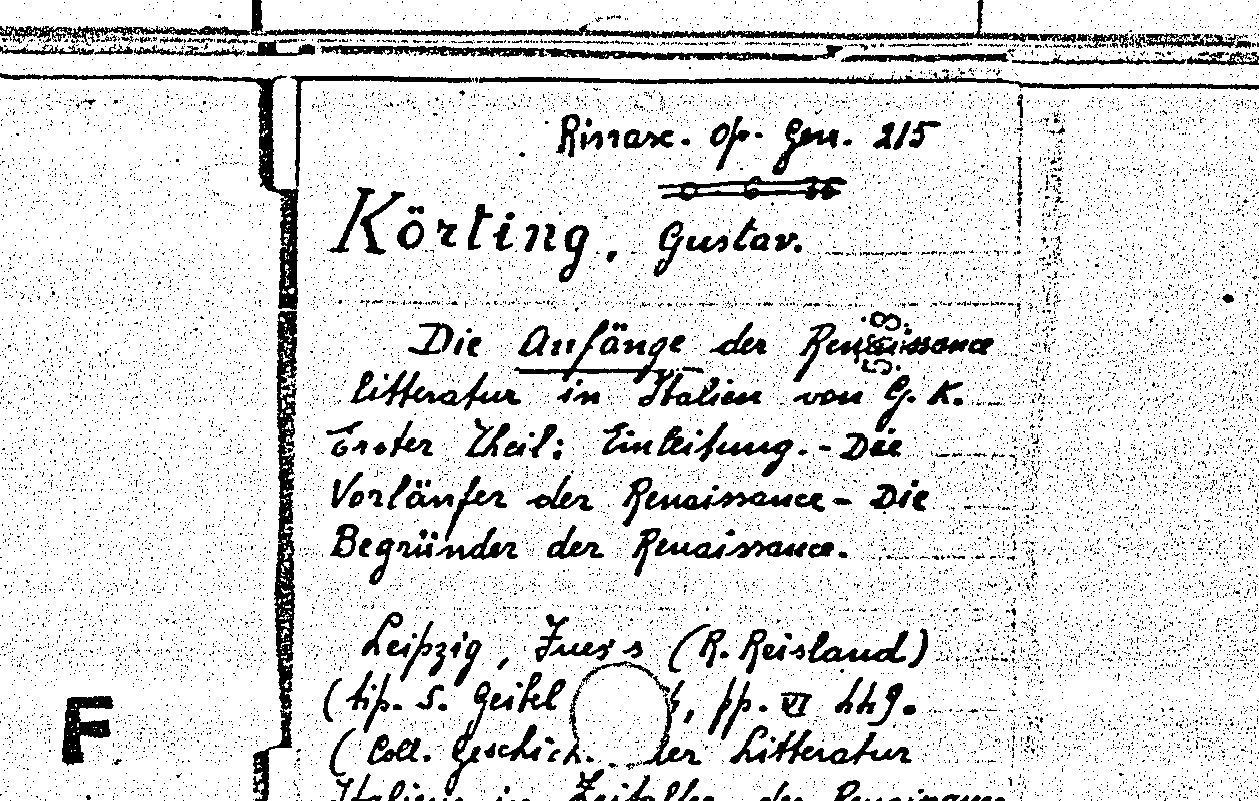 Rinasc. Op. Gen. 215
Körting, Gustav.
Die Anfänge der Renaissance
568
litteratur in Italien von G. K.
Erster Theil: Einleitung. - Die
Vorläufer der Renaissance - Die
Begründer der Renaissance.
Leipzig, Fues's (R. Reisland)
(tip. S. Geibel , pp. VI 449.
F
(Coll. Geschich. der Litteratur
Italiens im Zeitalter der Renaissance